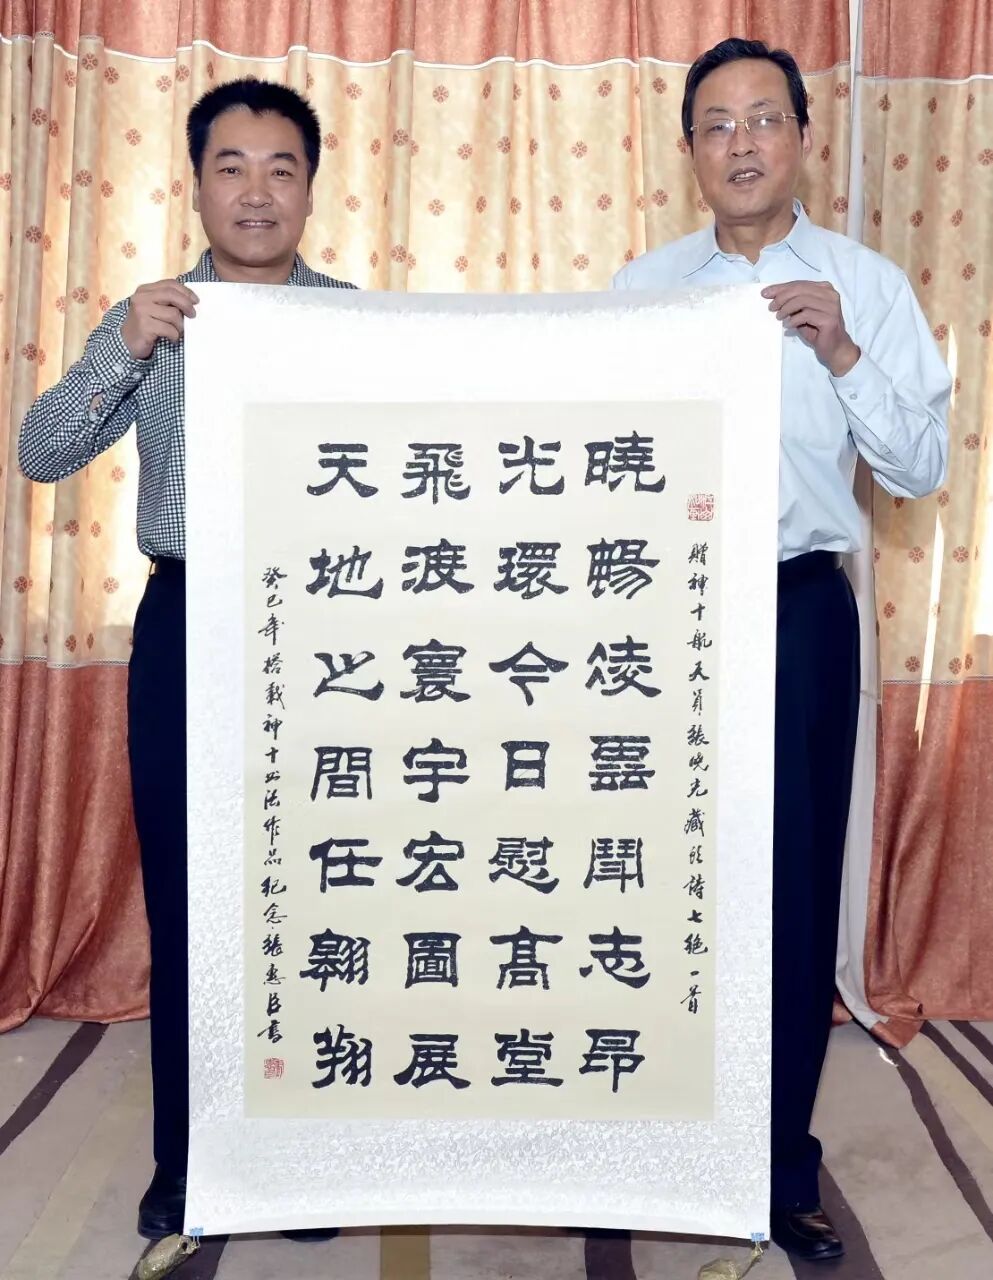 贈神十航天員張曉光藏頭詩七絕一首
曉暢凌雲鬥志昂
光環今日慰高堂
飛渡寰宇宏圖展
天地之間任翱翔
癸巳年搭載神十书法作品紀念張惠臣書